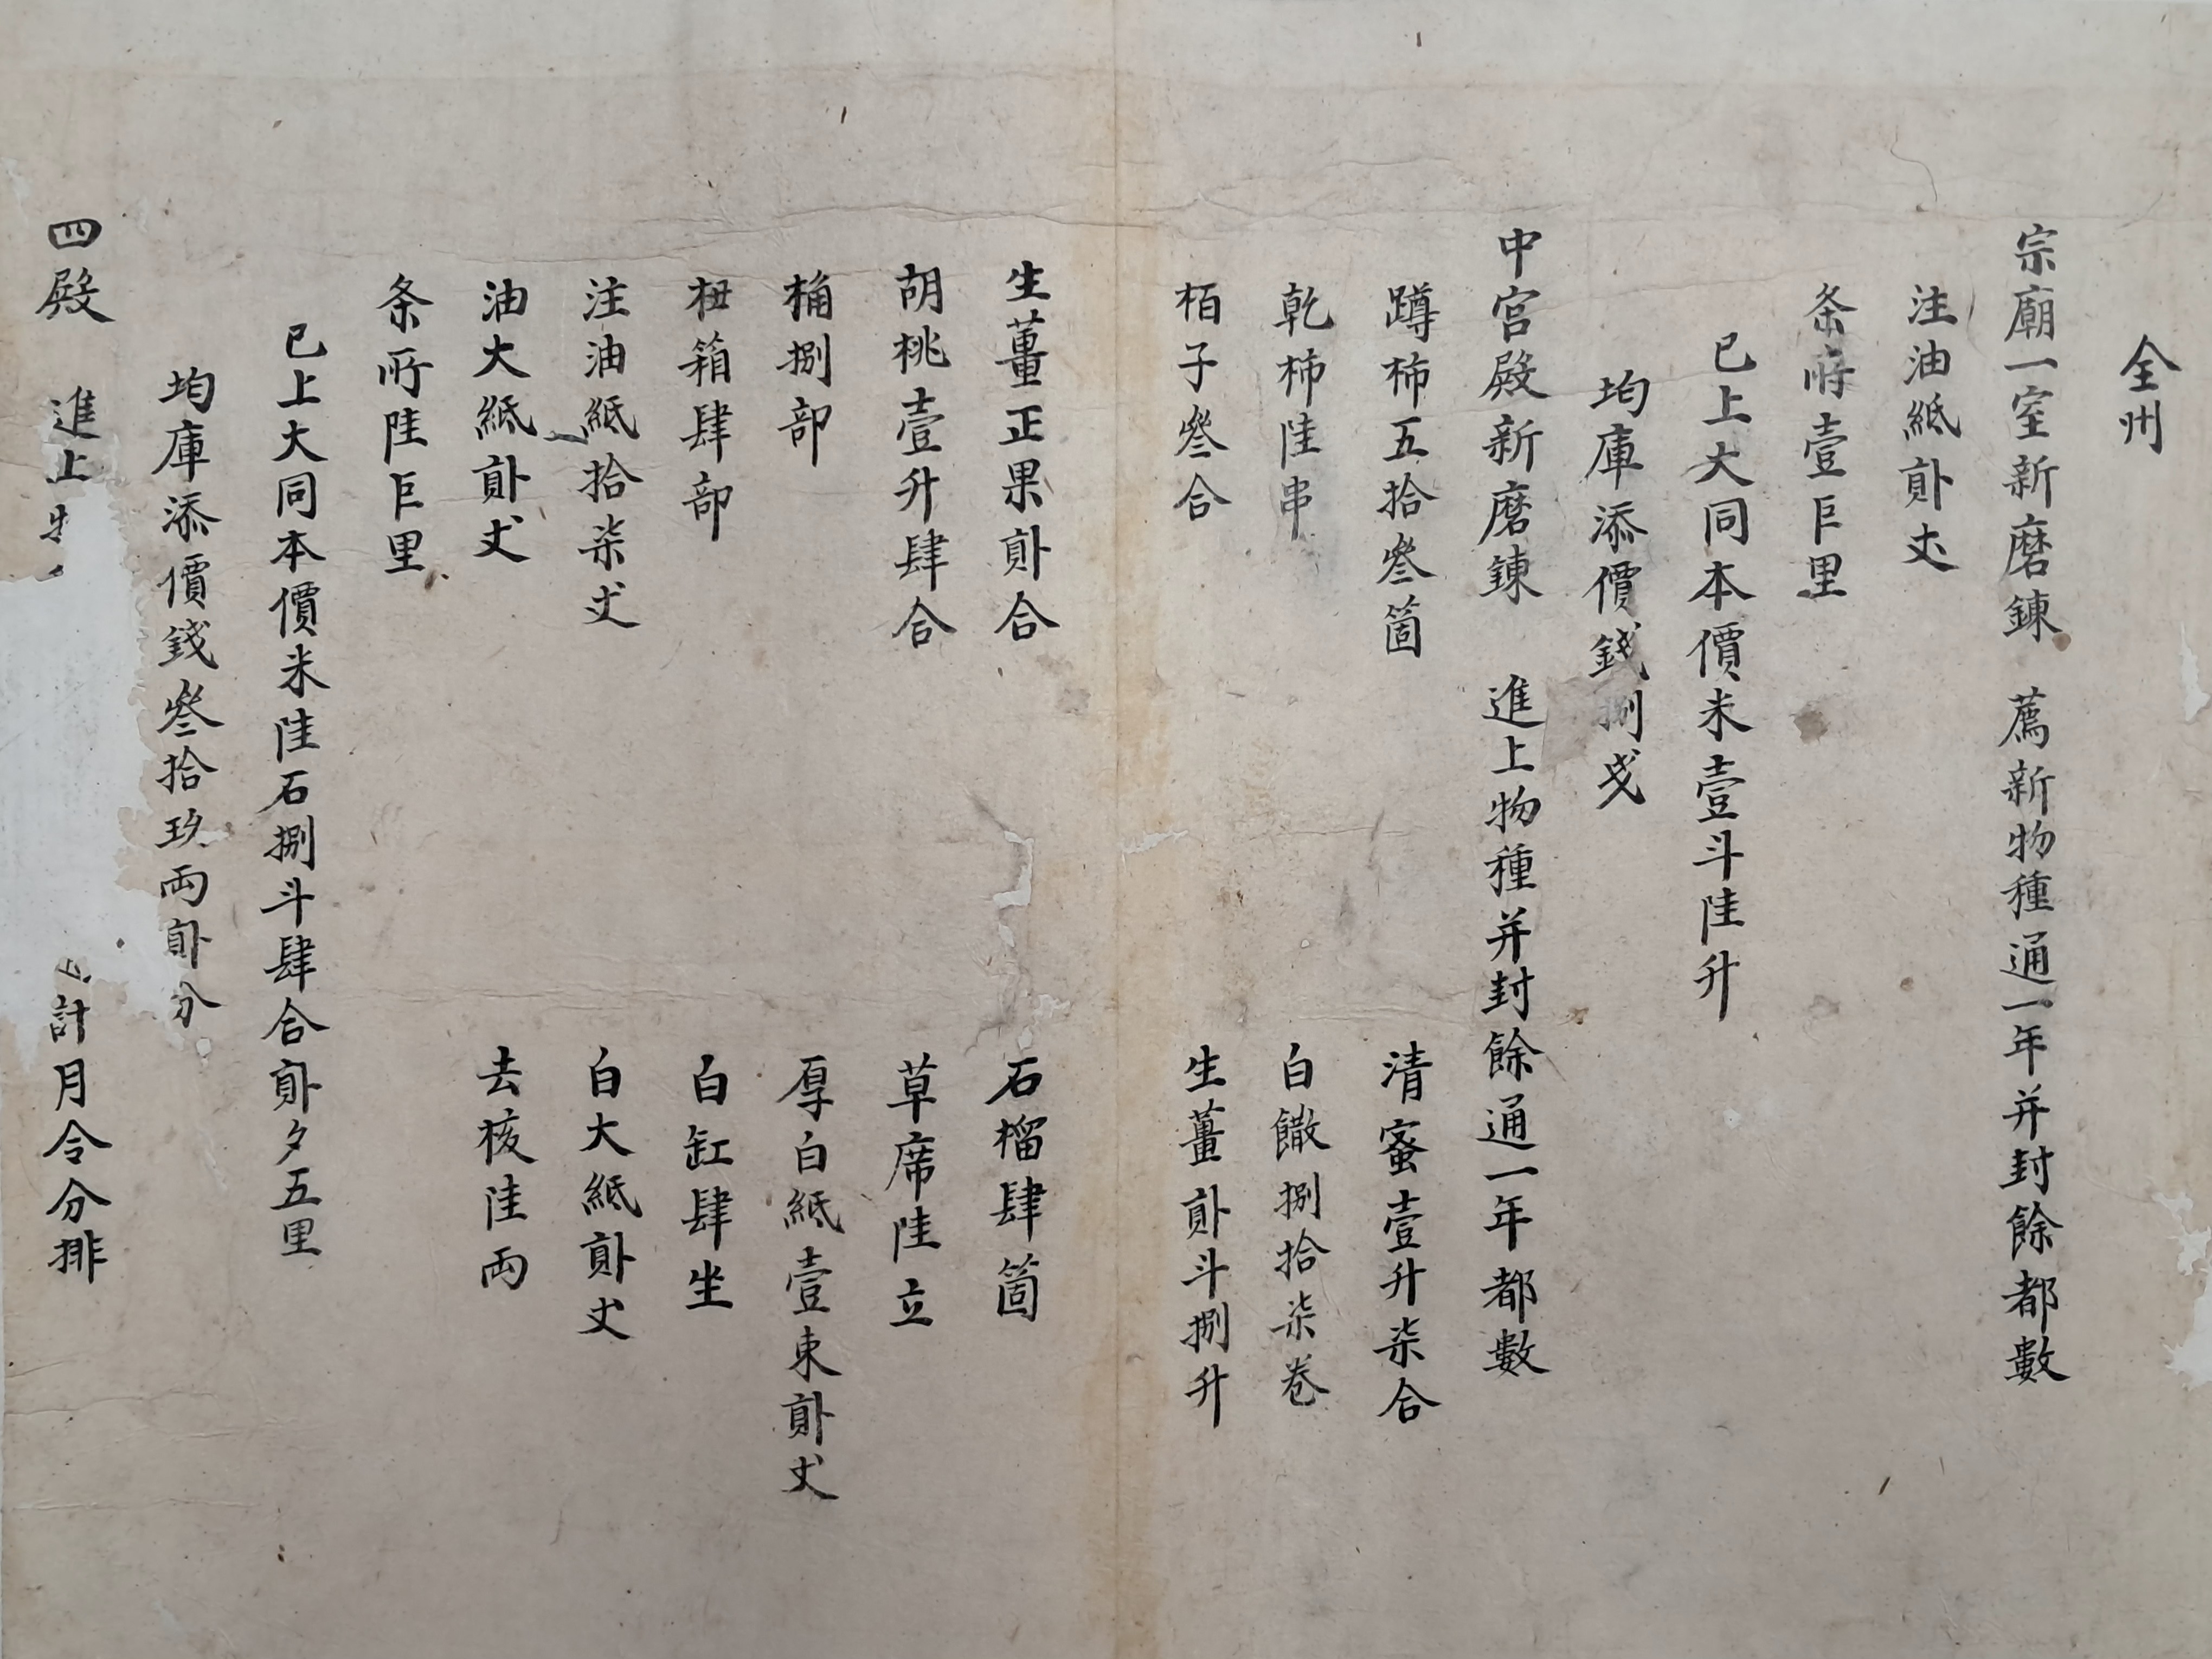 全州
宗廟一室新磨鍊 薦新物種通一年并封餘都數
注油紙貳丈
条所壹巨里
已上大同本價米壹斗陸升
均庫添價錢捌戔
中宮殿新磨鍊 進上物種并封餘通一年都數
蹲柿五拾叄箇 清蜜壹升柒合
乾柿陸串 白饊捌拾柒卷
栢子叄合 生薑貳斗捌升
生薑正果貳合 石榴肆箇
胡桃壹升肆合 草席陸立
桶捌部 厚白紙壹束貳丈
杻箱肆部 白缸肆坐
注油紙拾柒丈 白大紙貳丈
油大紙貳丈 去核陸両
条所陸巨里
已上大同本價米陸石捌斗肆合貳夕五里
均庫添價錢叄拾玖両貳分
四殿 進上 計月令分排